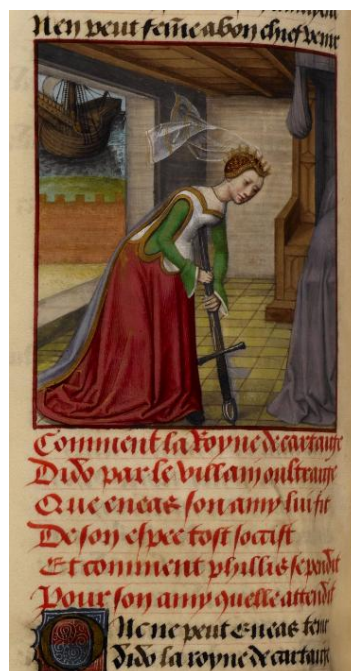 Nen peut fem̃e a bon chief venir
Comment la royne de cartaige
Dido par le villain oultraige
Que eneas son amy lui fit
De son espee tost soccist
Et comment phillis se pendit
Pour son amy quelle attendit
Onc ne peut eneas tenir
Dido la royne de cartaige